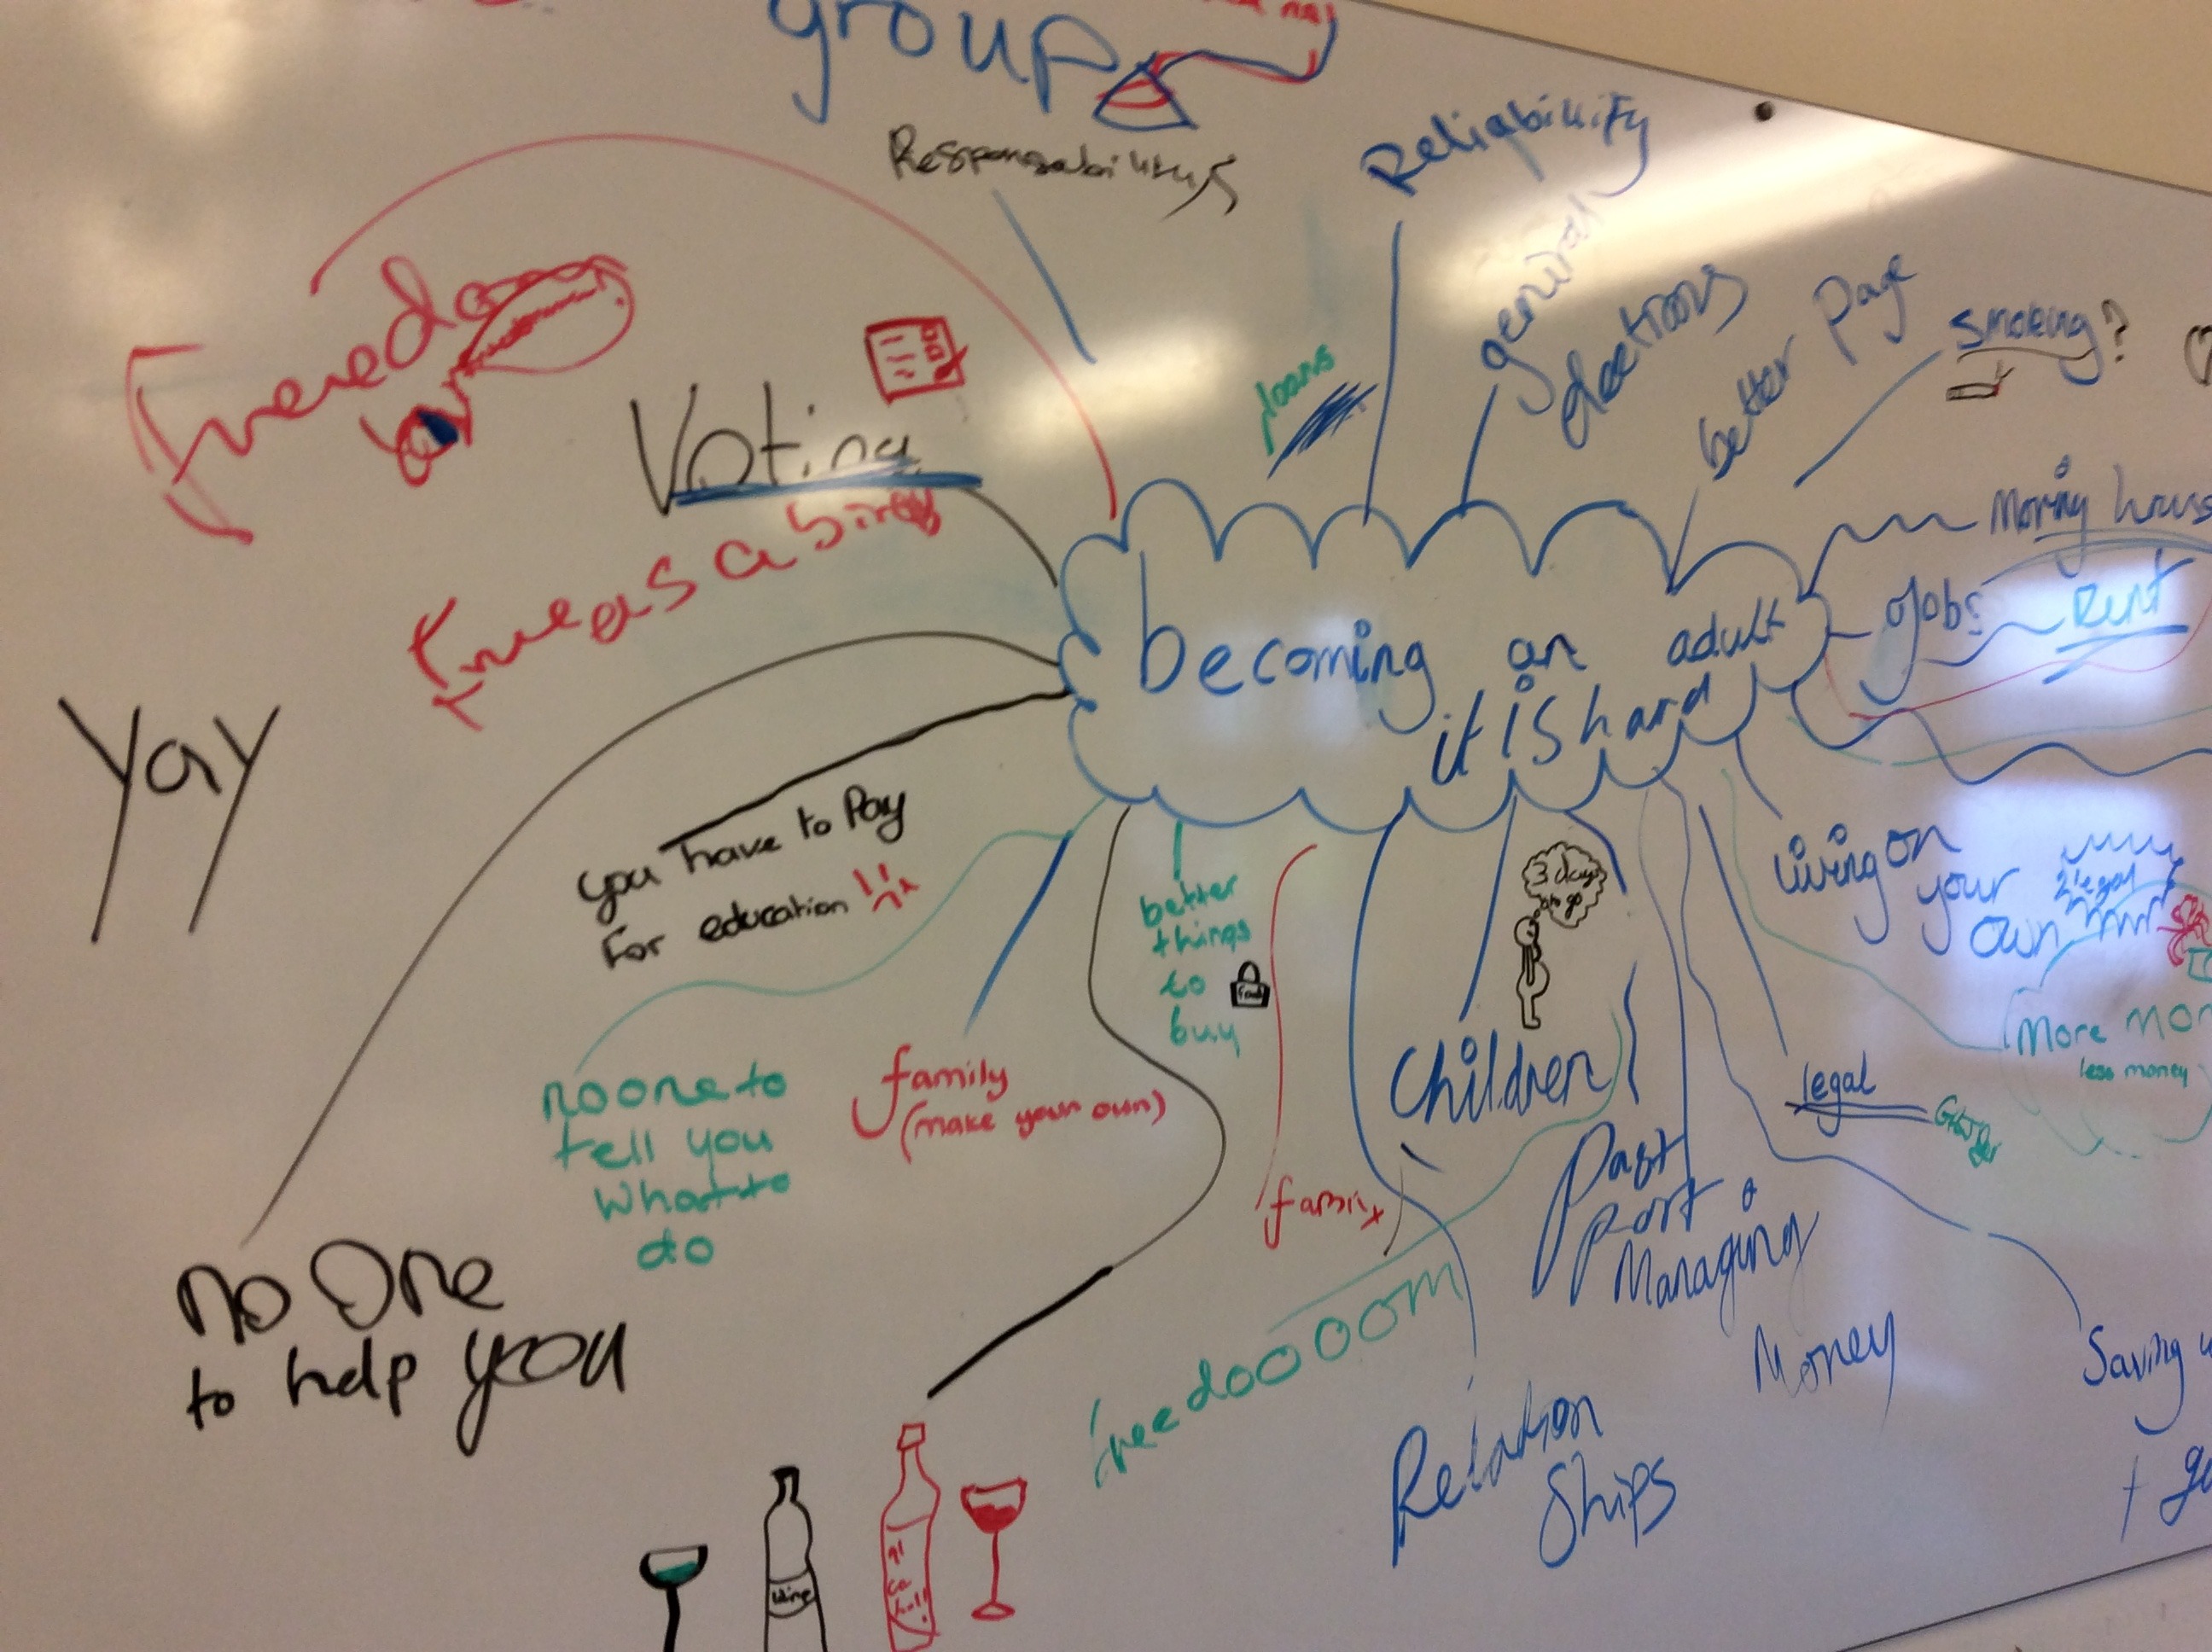 group
Responsabilitys
Reliability
geniral
elections
better Page
Smoking?
loans
Freedom
Voting
Free as a bird
becoming an adult
it is hard
Jobs
Rent
Yay
you have to Pay
For education !!
better
things
to
buy
Food
3 days
to go
living on
your
own
More
less money
no one to
tell you
What to
do
family
(make your own)
Children
legal
family
Past
port
Managing
Money
no One
to help you
freedooooom
Relation
Ships
Saving
+
Wine